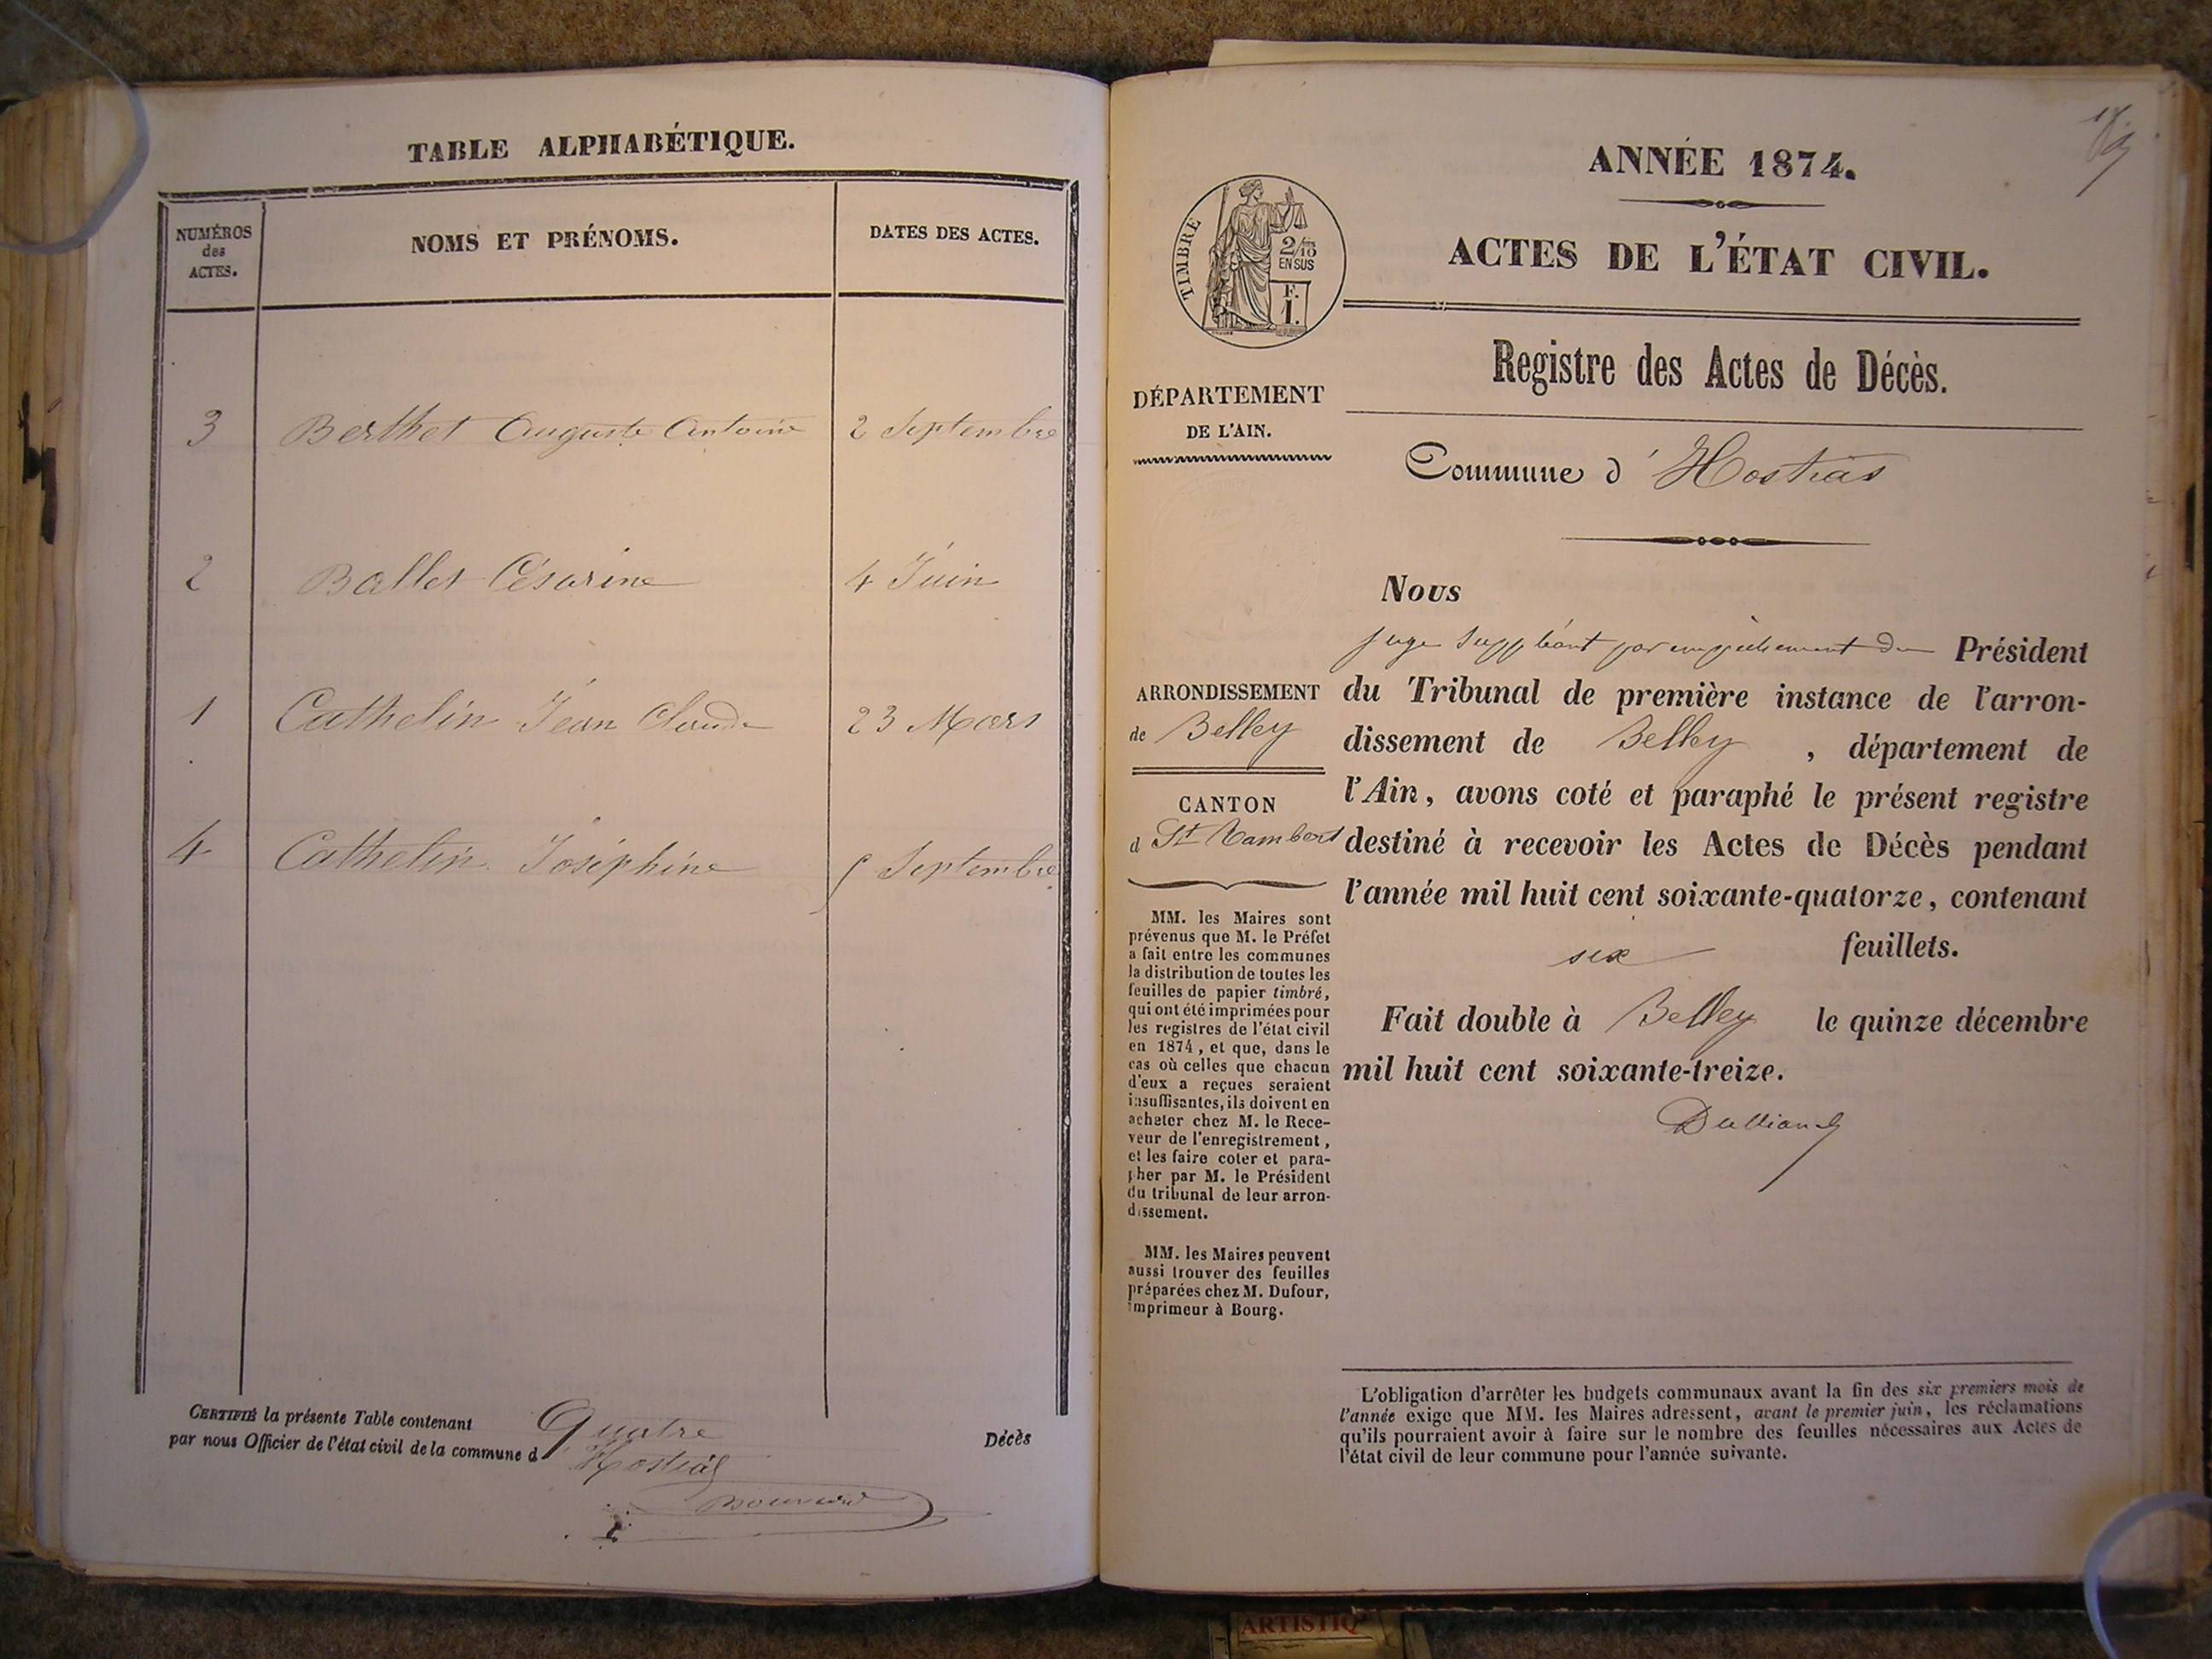 TABLE ALPHABÉTIQUE.
NUMÉROS
des
ACTES.
NOMS ET PRÉNOMS.
DATES DES ACTES.
3 Berthet Auguste Antoine 2 Septembre
2 Ballet Césarine 4 Juin
1 Cathelin Jean Claude 23 Mars
4 Cathelin Joséphine 5 Septembre
CERTIFIÉ la présente Table contenant Quatre Décès
par nous Officier de l'état civil de la commune d Hostias
Bouvard
ANNÉE 1874.
ACTES DE L'ÉTAT CIVIL.
TIMBRE
2/10
EN SUS
F.
1.
Registre des Actes de Décès.
DÉPARTEMENT
DE L'AIN.
Commune d' Hostias
ARRONDISSEMENT
de Belley
CANTON
d St Rambert
MM. les Maires sont
prévenus que M. le Préfet
a fait entre les communes
la distribution de toutes les
feuilles de papier timbré,
qui ont été imprimées pour
les registres de l'état civil
en 1874, et que, dans le
cas où celles que chacun
d'eux a reçues seraient
insuffisantes, ils doivent en
acheter chez M. le Rece-
veur de l'enregistrement,
et les faire coter et para-
pher par M. le Président
du tribunal de leur arron-
dissement.
MM. les Maires peuvent
aussi trouver des feuilles
préparées chez M. Dufour,
imprimeur à Bourg.
Nous
juge suppléant par empêchement du Président
du Tribunal de première instance de l'arron-
dissement de Belley, département de
l'Ain, avons coté et paraphé le présent registre
destiné à recevoir les Actes de Décès pendant
l'année mil huit cent soixante-quatorze, contenant
six feuillets.
Fait double à Belley le quinze décembre
mil huit cent soixante-treize.
L'obligation d'arrêter les budgets communaux avant la fin des six premiers mois de
l'année exige que MM. les Maires adressent, avant le premier juin, les réclamations
qu'ils pourraient avoir à faire sur le nombre des feuilles nécessaires aux Actes de
l'état civil de leur commune pour l'année suivante.
ARTISTIQ